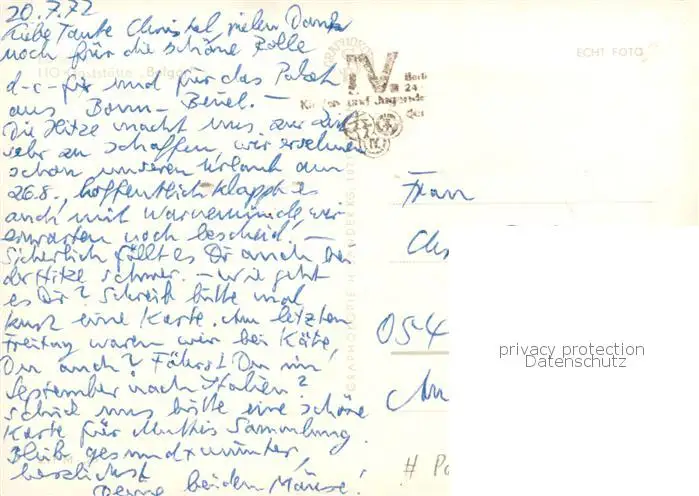 20.7.72
Liebe Tante Christel, vielen Dank
noch für die schöne Rolle
d-c-fix und für das Paket
aus Bonn-Beuel. —
Die Hitze macht uns zur Zeit
sehr zu schaffen, wir ersehnen
schon unseren Urlaub am
26.8., hoffentlich klappt es
auch mit Warnemünde, wir
erwarten noch bescheid. —
Sicherlich fällt es Dir auch bei
der Hitze schwer. — Wie geht
es Dir? Schreib bitte mal
kurz eine Karte. Am letzten
Freitag waren wir bei Käte,
Du auch? Fährst Du im
September nach Italien?
Schick uns bitte eine schöne
Karte für Muttis Sammlung.
Bleib gesund + munter,
herzlichst
Deine beiden Mäuse!
HO-Gaststätte
ECHT FOTO
IV
Berli
24
Kinder- und Jugend
Frau
054
privacy protection
Datenschutz